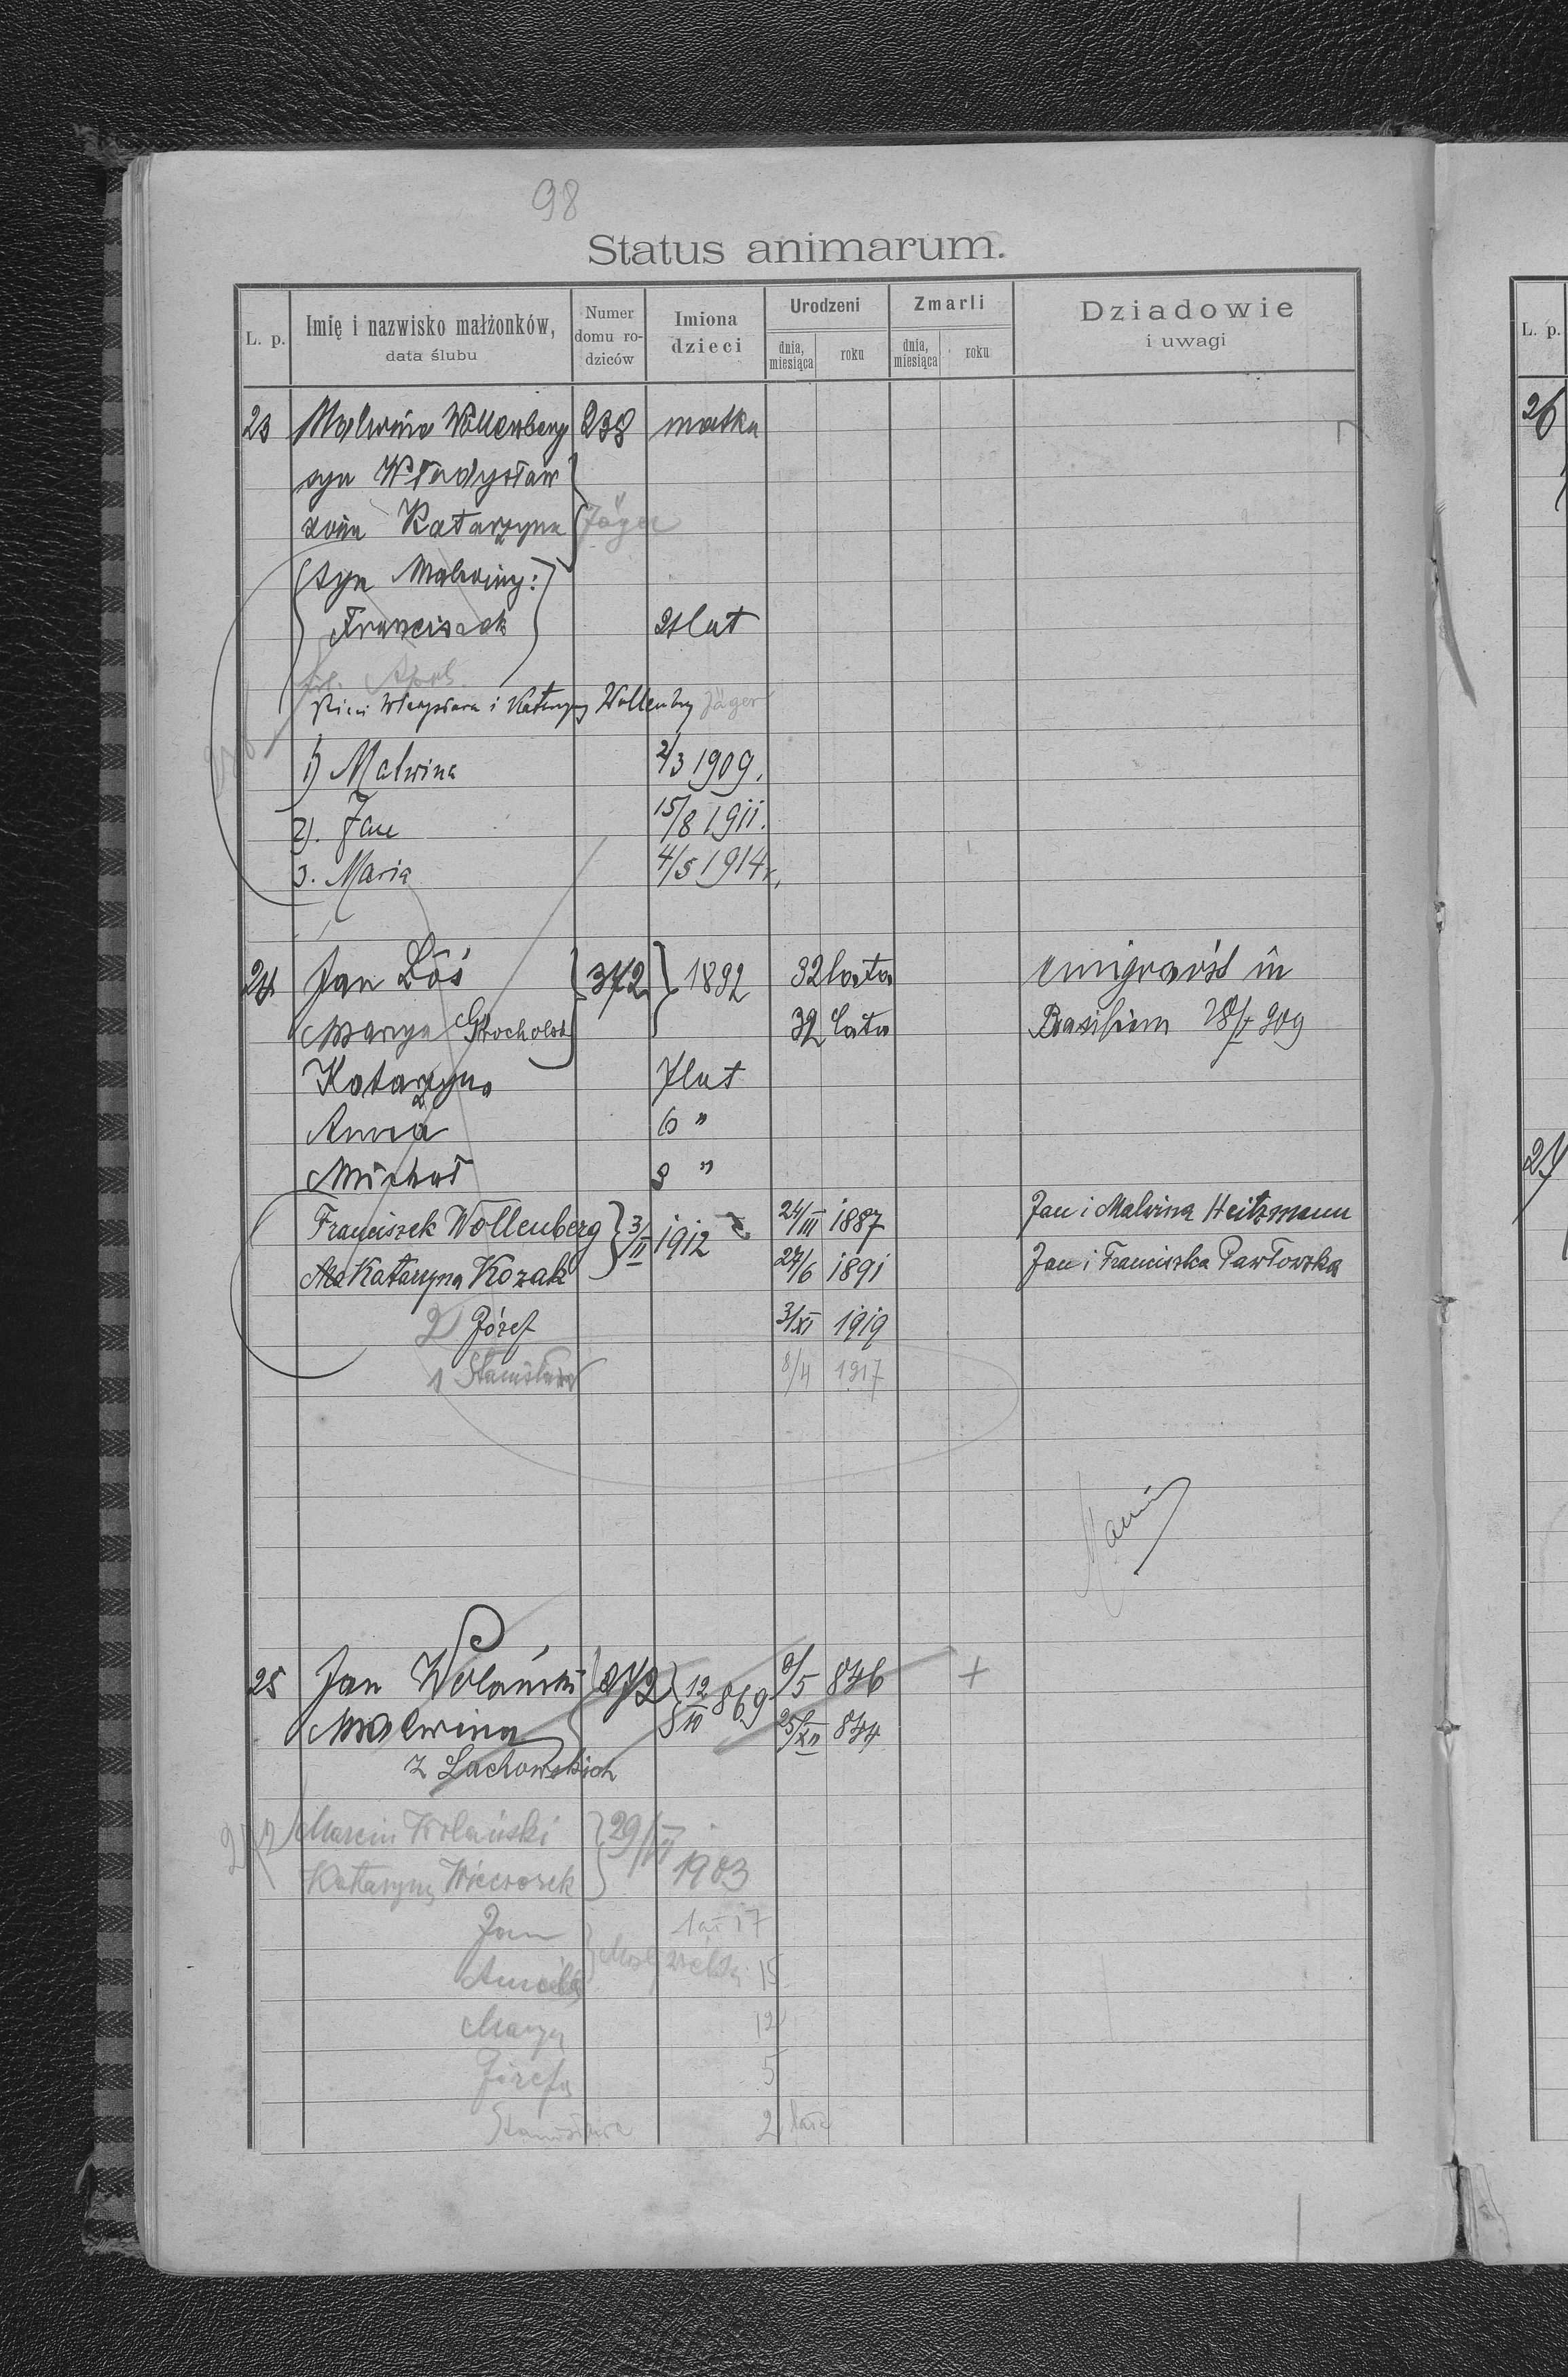 98
Status animarum.
L. p.
Imię i nazwisko małżonków,
data ślubu
Numer domu rodziców
Imiona dzieci
Urodzeni
dnia, miesiąca
roku
Zmarli
dnia, miesiąca
roku
Dziadowie
i uwagi
23 Malwina Wollenberg 238 matka
syn Władysław
żona Katarzyna Jäger
syn Malwiny:
Franciszek 21 lat
Władysława i Katarzyny Wollenberg Jäger
1) Malwina 2/3 1909.
2). Jan 15/8 1911.
3. Maria 4/5 1914 r.
24 Jan Łoś 372 1892 32 lata emigravit in
Marya Grocholska 32 lata Brasiliam 28/X 909
Katarzyna 7 lat
Anna 6 "
Michał 3 "
Franciszek Wollenberg 3/II 1912 24/III 1887 Jan i Malwina Heitzmann
Katarzyna Kozak 27/6 1891 Jan i Franciszka Pawłowska
2 Józef 3/XI 1919
1 Stanisław 8/4 1917
25 Jan Wolański 272 12/II 869 9/5 846 +
Malwina 25/XII 844
z Lachowskich
272 Marcin Wolański 29/II
Katarzyna Wieczorek 1903
Jan lat 17
Aniela 15
Marya 12
Józefa 5
Stanisława 2 lata
L. p.
26
27